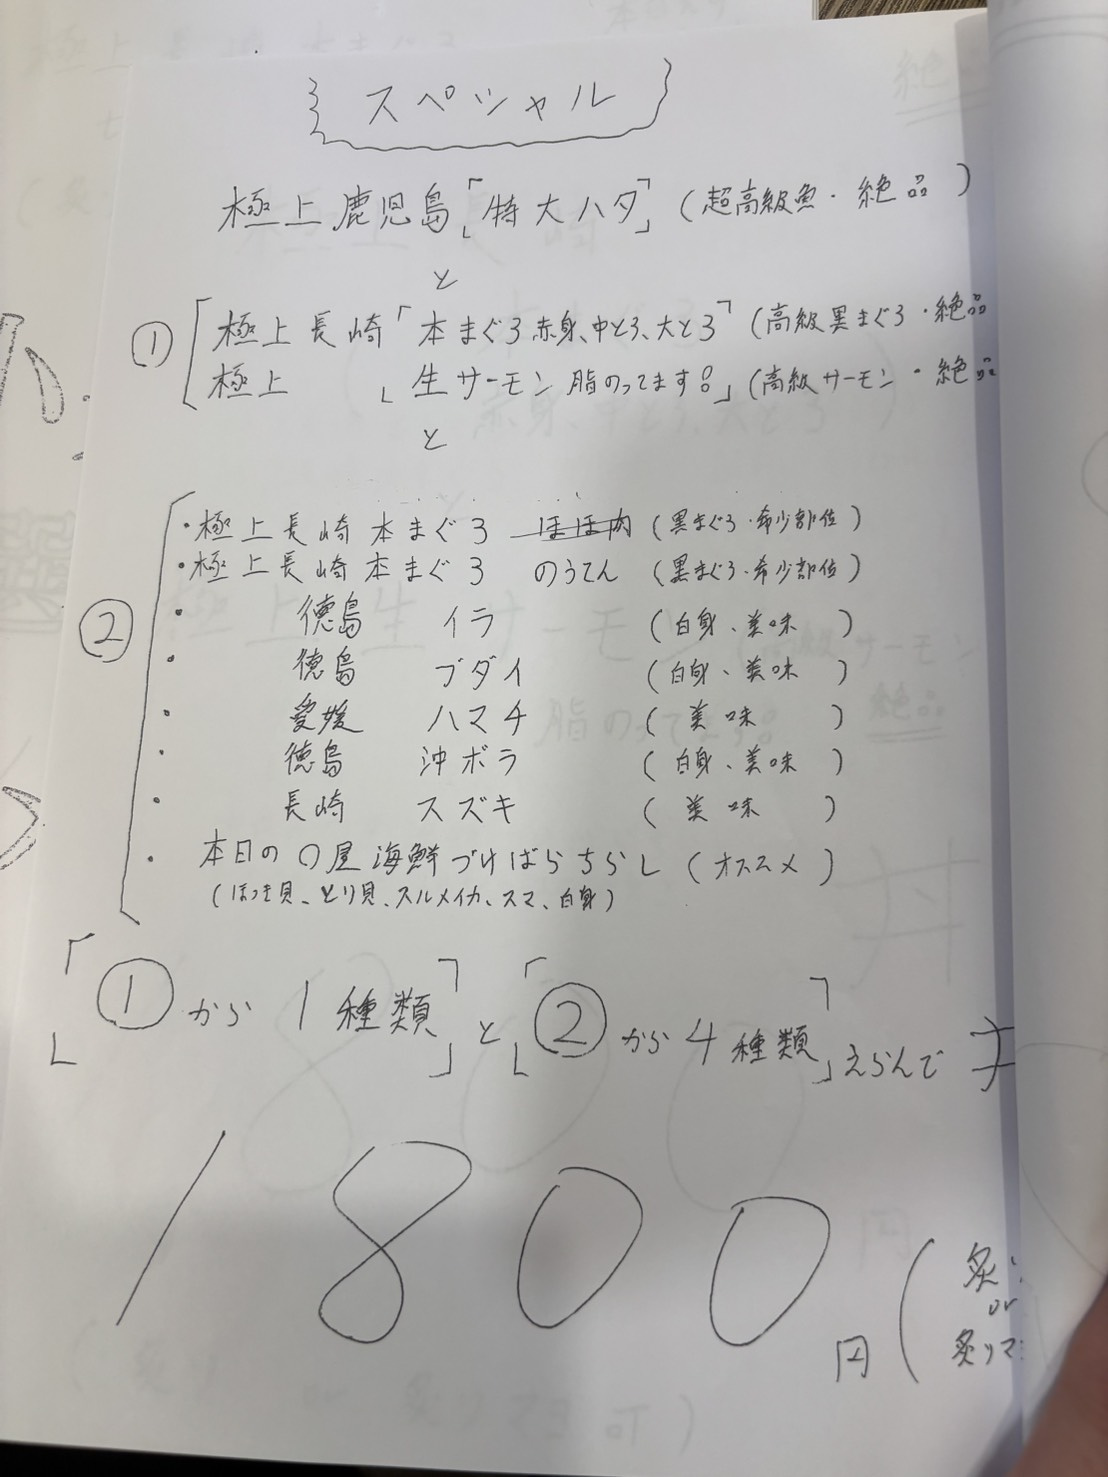 スペシャル
極上鹿児島「特大ハタ」(超高級魚・絶品)
と
① 極上長崎「本まぐろ赤身、中とろ、大とろ」(高級黒まぐろ・絶品
極上 「生サーモン脂のってます。」(高級サーモン・絶品
と
②
・極上長崎本まぐろ ほほ肉 (黒まぐろ・希少部位)
・極上長崎本まぐろ のうてん (黒まぐろ・希少部位)
・徳島 イラ (白身、美味)
・徳島 ブダイ (白身、美味)
・愛媛 ハマチ (美味)
・徳島 沖ボラ (白身、美味)
・長崎 スズキ (美味)
・本日の〇屋海鮮づけばらちらし(オススメ)
(ほっき貝、とり貝、スルメイカ、スマ、白身)
「①から1種類」と「②から4種類」えらんで
1800円
(炙
or
炙りマ